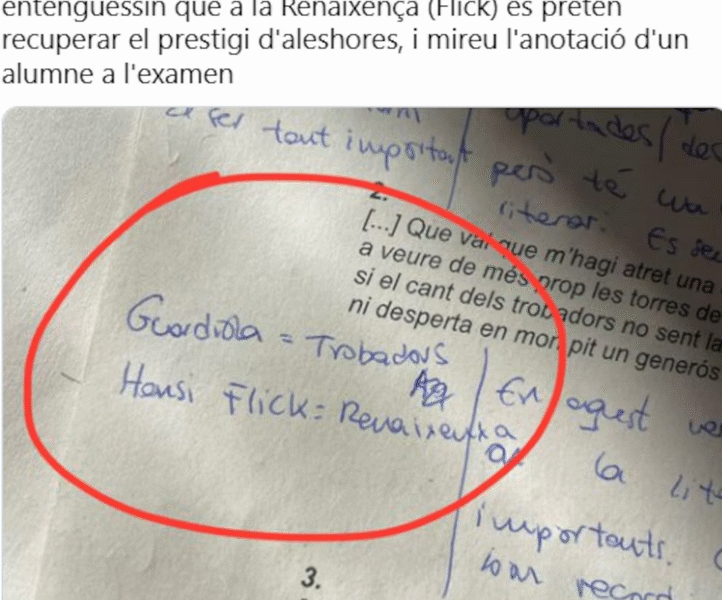 entenguessin que a la Renaixença (Flick) es pretén
recuperar el prestigi d'aleshores, i mireu l'anotació d'un
alumne a l'examen
ser tant important
aportades/ des
però té una
literar. Es
2.
[...] Que val que m'hagi atret una
a veure de més prop les torres de
si el cant dels trobadors no sent la
ni desperta en mon pit un generós
Guardiola = Trobadors
Hansi Flick = Renaixenxa
En aquest ve
la lit
importants.
record
3.